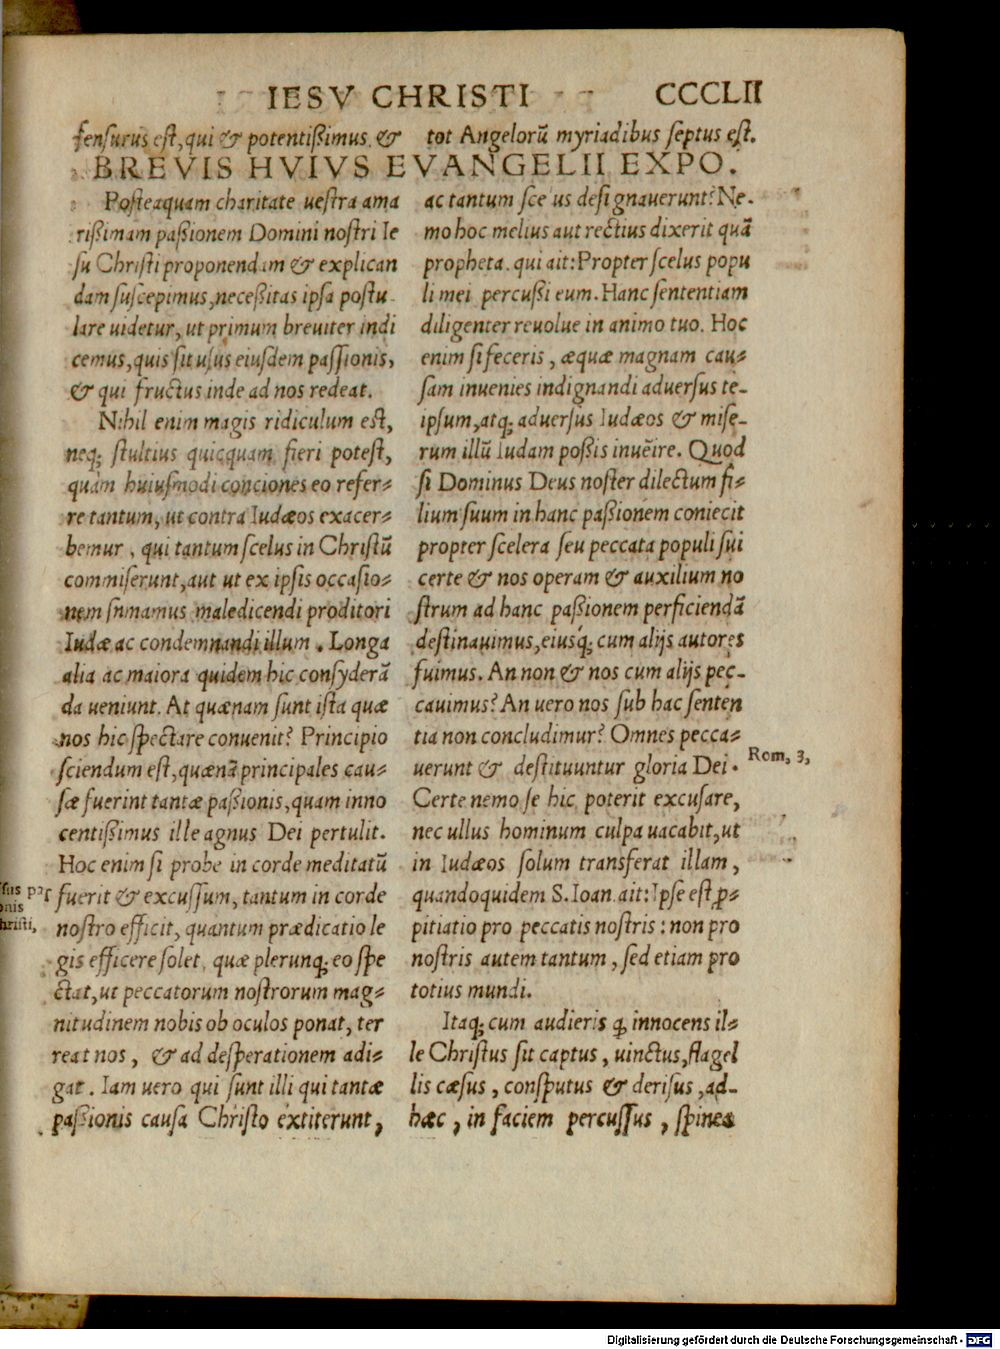 IESV CHRISTI CCCLII
fensurus est, qui & potentißimus & tot Angelorũ myriadibus septus est.
BREVIS HVIVS EVANGELII EXPO.
Posteaquam charitate uestra ama
rißimam paßionem Domini nostri Ie
su Christi proponendam & explican
dam suscepimus, neceßitas ipsa postu
lare uidetur, ut primum breuiter indi
cemus, quis sit usus eiusdem passionis,
& qui fructus inde ad nos redeat.
Nihil enim magis ridiculum est,
neq; stultius quicquam fieri potest,
quàm huiusmodi conciones eo refer-
re tantum, ut contra Iudæos exacer-
bemur, qui tantum scelus in Christũ
commiserunt, aut ut ex ipsis occasio-
nem sumamus maledicendi proditori
Iudæ ac condemnandi illum. Longa
alia ac maiora quidem hic consyderã
da ueniunt. At quænam sunt ista quæ
nos hic spectare conuenit? Principio
sciendum est, quænã principales cau-
sæ fuerint tantæ paßionis, quam inno
centißimus ille agnus Dei pertulit.
Hoc enim si probe in corde meditatũ
fuerit & excussum, tantum in corde
nostro efficit, quantum prædicatio le
gis efficere solet, quæ plerunq; eo spe
ctat, ut peccatorum nostrorum mag-
nitudinem nobis ob oculos ponat, ter
reat nos, & ad desperationem adi-
gat. Iam uero qui sunt illi qui tantæ
paßionis causa Christo extiterunt,
sus pas
onis
hristi,
ac tantum scelus designauerunt? Ne-
mo hoc melius aut rectius dixerit quã
propheta, qui ait: Propter scelus popu
li mei percußi eum. Hanc sententiam
diligenter reuolue in animo tuo. Hoc
enim si feceris, æquæ magnam cau-
sam inuenies indignandi aduersus te-
ipsum, atq; aduersus Iudæos & mise-
rum illũ Iudam poßis inuẽire. Quod
si Dominus Deus noster dilectum fi-
lium suum in hanc paßionem coniecit
propter scelera seu peccata populi sui
certe & nos operam & auxilium no
strum ad hanc paßionem perficiendã
destinauimus, eiusq; cum alijs autores
fuimus. An non & nos cum alijs pec-
cauimus? An uero nos sub hac senten
tia non concludimur? Omnes pecca-
uerunt & destituuntur gloria Dei.
Certe nemo se hic poterit excusare,
nec ullus hominum culpa uacabit, ut
in Iudæos solum transferat illam,
quandoquidem S. Ioan. ait: Ipse est ꝓ-
pitiatio pro peccatis nostris: non pro
nostris autem tantum, sed etiam pro
totius mundi.
Itaq; cum audieris ꝙ innocens il-
le Christus sit captus, uinctus, flagel
lis cæsus, consputus & derisus, ad-
hæc, in faciem percussus, spinea
Rom, 3,
Digitalisierung gefördert durch die Deutsche Forschungsgemeinschaft - DFG